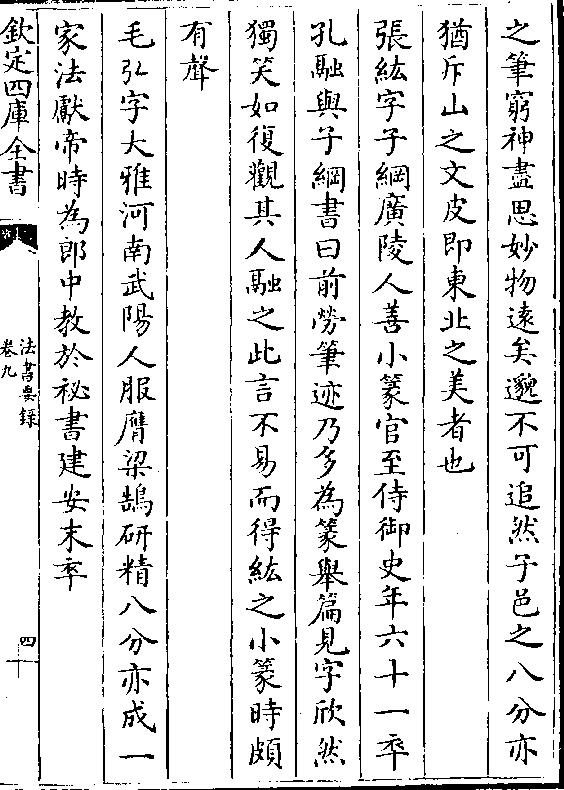 之筆窮神盡思妙物遠矣邈不可追然子邑之八分亦
猶斥山之文皮即東北之美者也
張紘字子綱廣陵人善小篆官至侍御史年六十一卒
孔融與子綱書曰前勞筆迹乃多為篆舉篇見字欣然
獨笑如復觀其人融之此言不易而得紘之小篆時頗
有聲
毛弘字大雅河南武陽人服膺梁鵠研精八分亦成一
家法獻帝時為郎中教於祕書建安末卒
欽定四庫全書
法書要録
卷九
四十